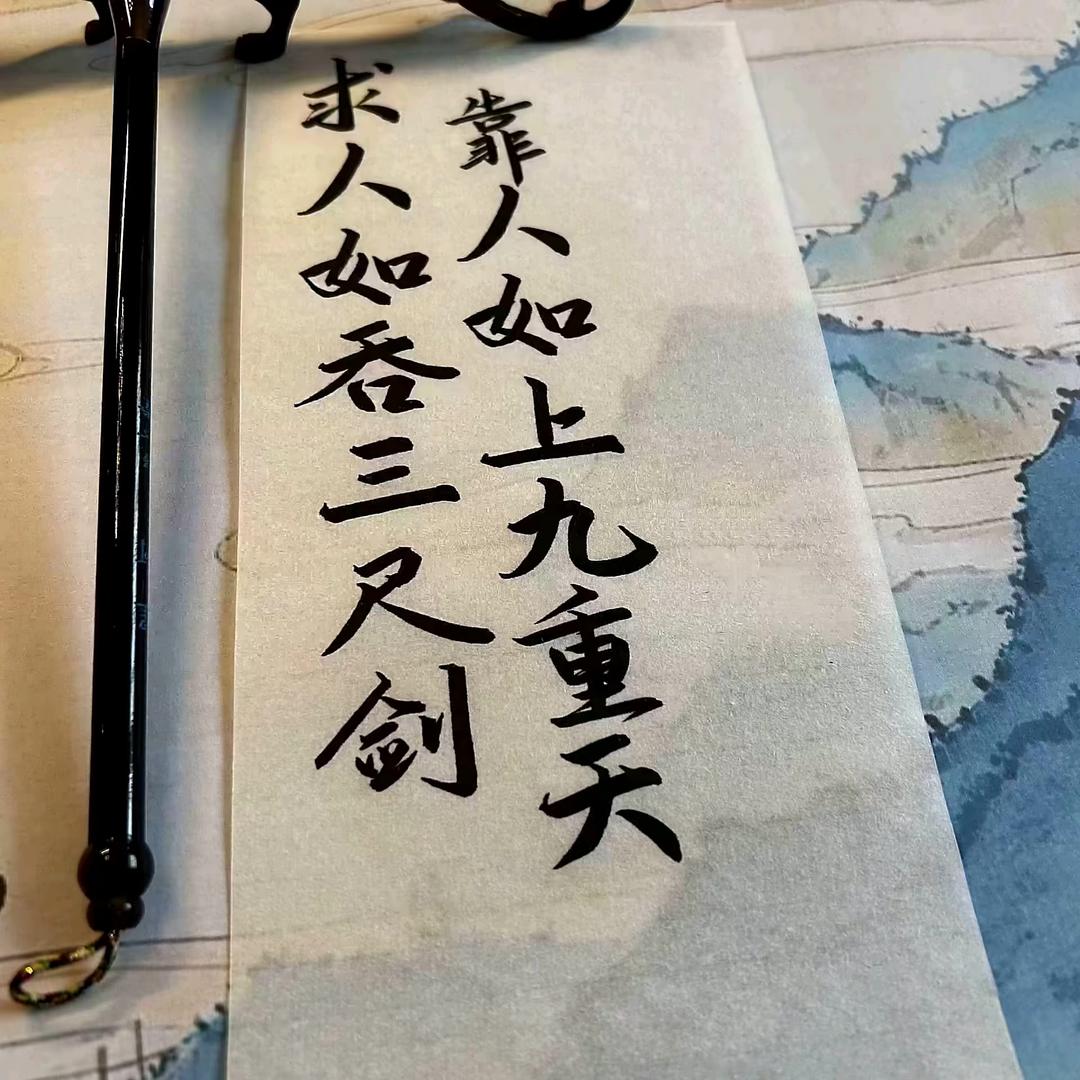 求人如吞三尺剑
靠人如上九重天